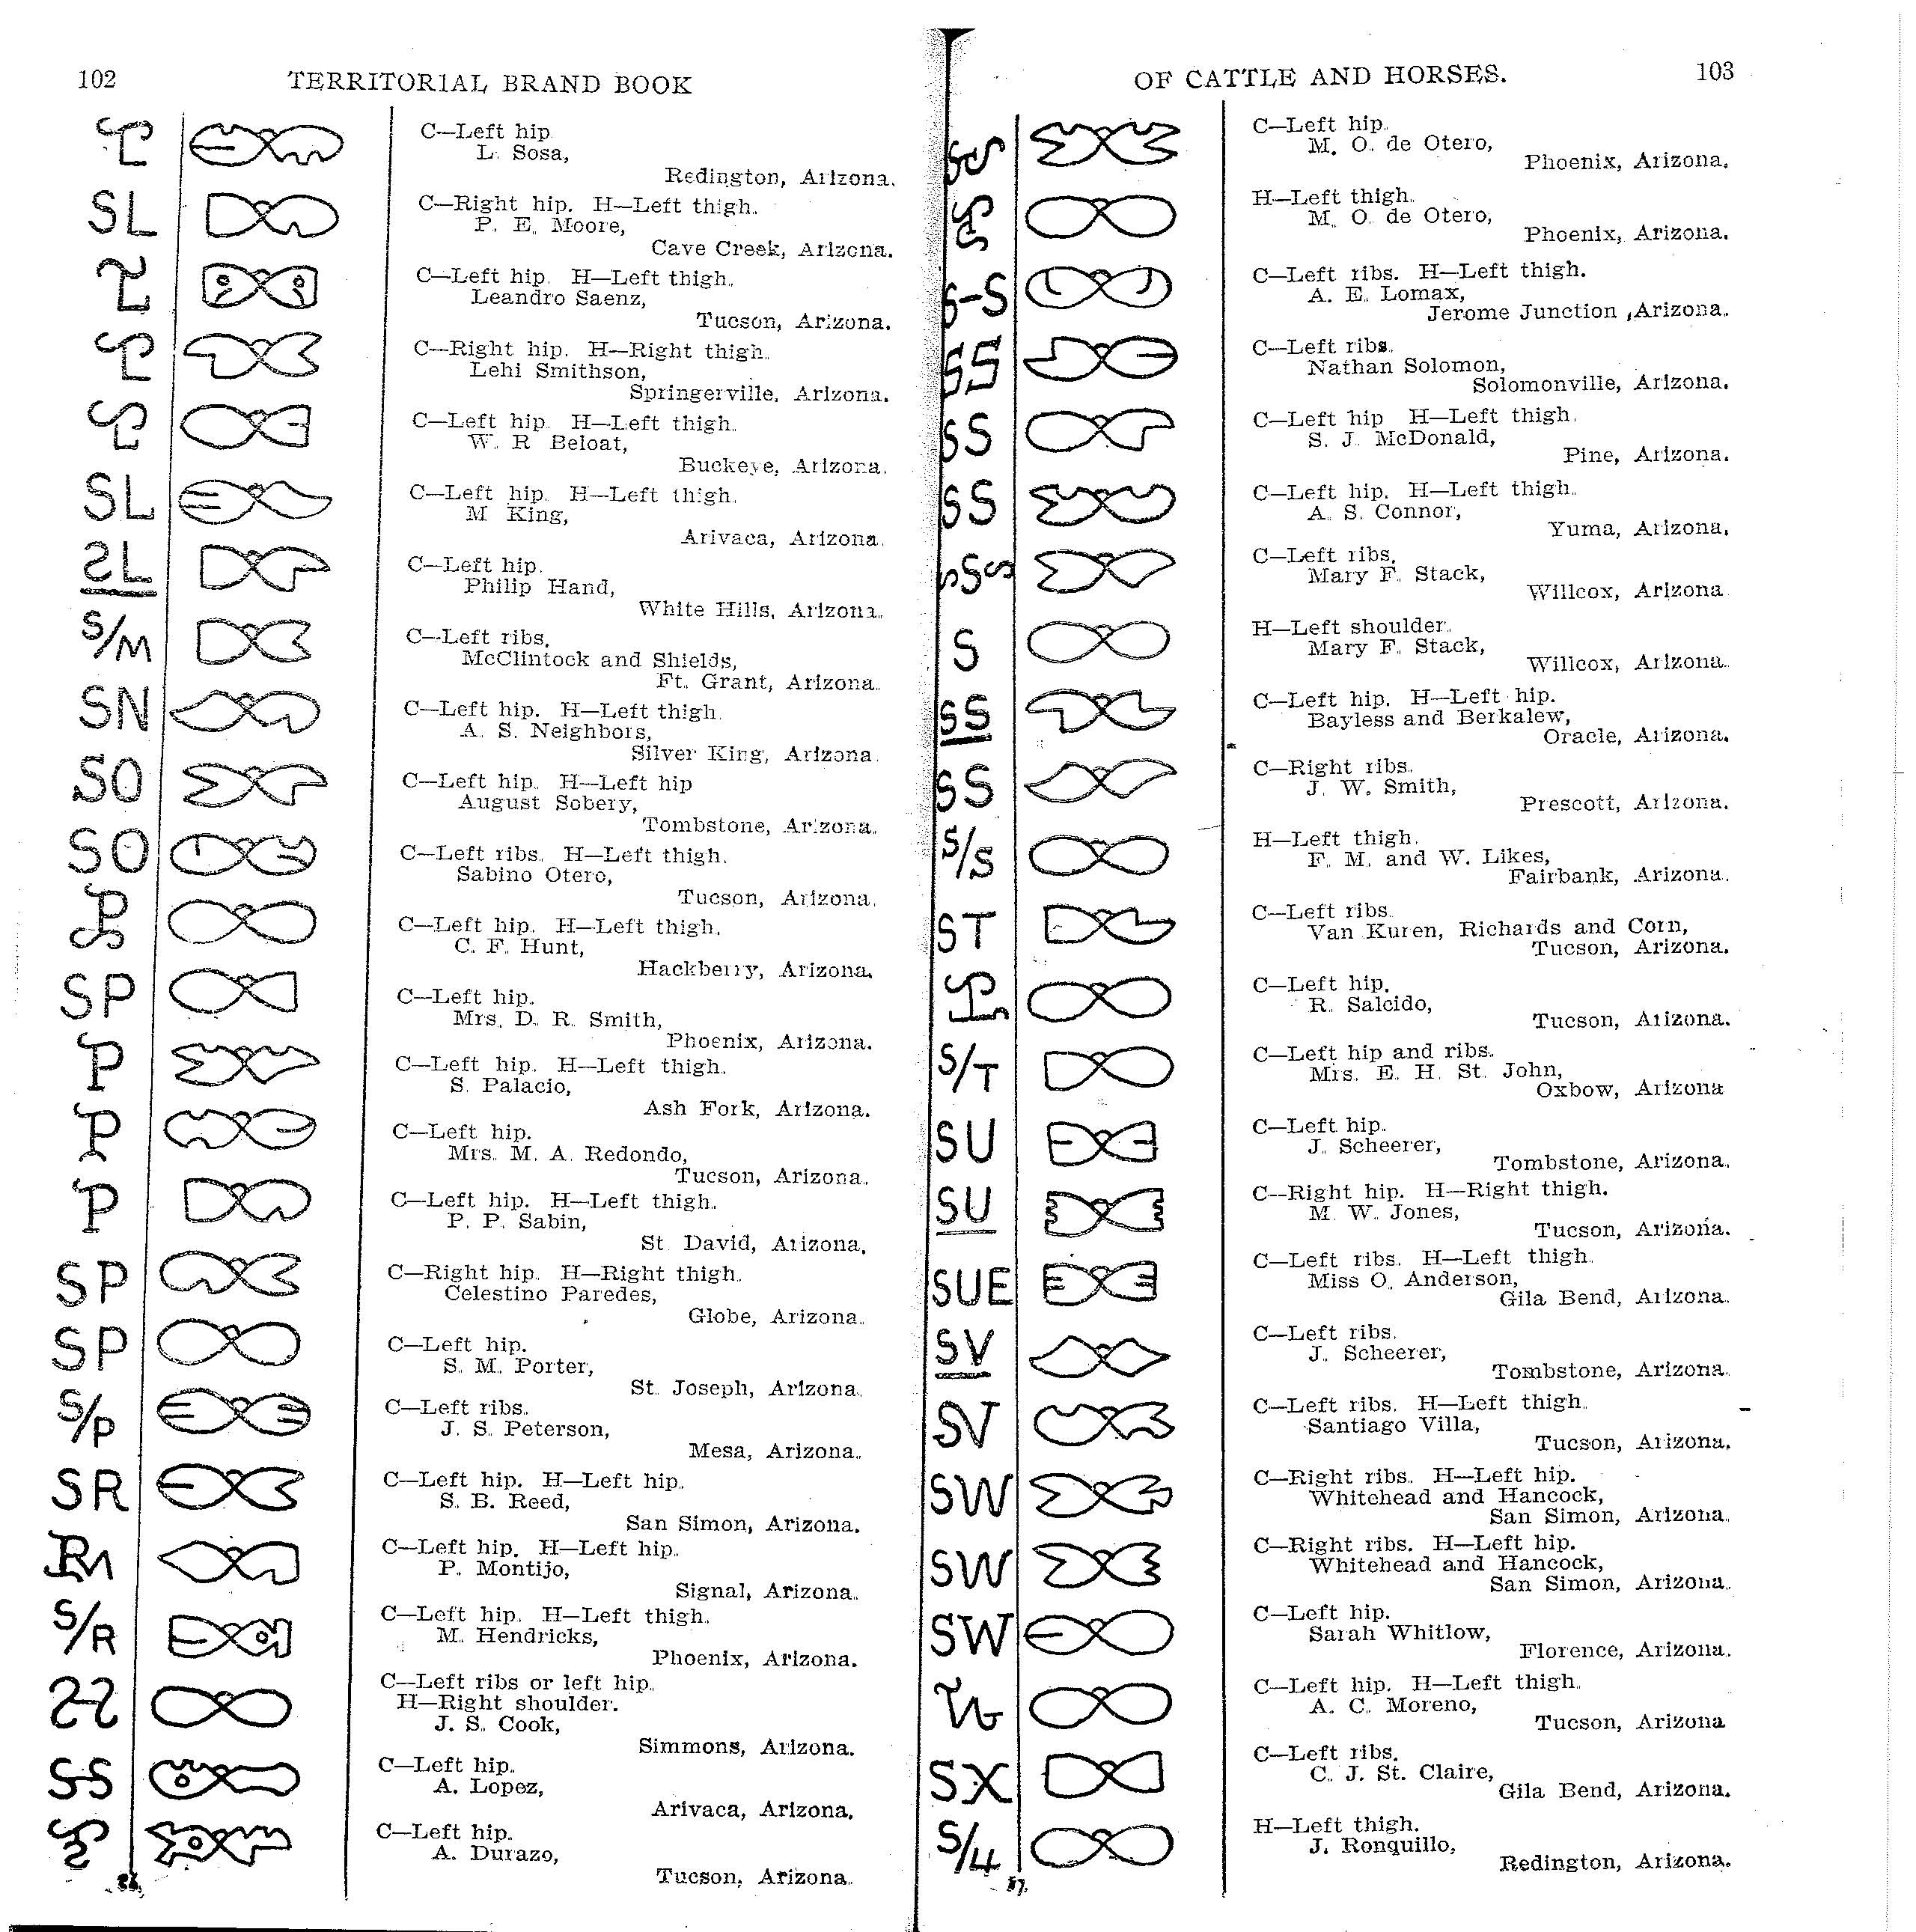 102
TERRITORIAL BRAND BOOK
C—Left hip
L. Sosa,
Redington, Arizona.
SL
C—Right hip. H—Left thigh.
P. E. Moore,
Cave Creek, Arizona.
C—Left hip. H—Left thigh.
Leandro Saenz,
Tucson, Arizona.
C—Right hip. H—Right thigh.
Lehi Smithson,
Springerville, Arizona.
C—Left hip. H—Left thigh.
W. R Beloat,
Buckeye, Arizona.
SL
C—Left hip. H—Left thigh.
M King,
Arivaca, Arizona.
C—Left hip.
Philip Hand,
White Hills, Arizona.
S/M
C—Left ribs.
McClintock and Shields,
Ft. Grant, Arizona.
SN
C—Left hip. H—Left thigh.
A. S. Neighbors,
Silver King, Arizona.
SO
C—Left hip. H—Left hip
August Sobery,
Tombstone, Arizona.
SO
C—Left ribs. H—Left thigh.
Sabino Otero,
Tucson, Arizona.
C—Left hip. H—Left thigh.
C. F. Hunt,
Hackberry, Arizona.
SP
C—Left hip.
Mrs. D. R. Smith,
Phoenix, Arizona.
C—Left hip. H—Left thigh.
S. Palacio,
Ash Fork, Arizona.
C—Left hip.
Mrs. M. A. Redondo,
Tucson, Arizona.
C—Left hip. H—Left thigh.
P. P. Sabin,
St. David, Arizona.
SP
C—Right hip. H—Right thigh.
Celestino Paredes,
Globe, Arizona.
SP
C—Left hip.
S. M. Porter,
St. Joseph, Arizona.
S/P
C—Left ribs.
J. S. Peterson,
Mesa, Arizona.
SR
C—Left hip. H—Left hip.
S. B. Reed,
San Simon, Arizona.
C—Left hip. H—Left hip.
P. Montijo,
Signal, Arizona.
S/R
C—Left hip. H—Left thigh.
M. Hendricks,
Phoenix, Arizona.
C—Left ribs or left hip.
H—Right shoulder.
J. S. Cook,
Simmons, Arizona.
S-S
C—Left hip.
A. Lopez,
Arivaca, Arizona.
C—Left hip.
A. Durazo,
Tucson, Arizona.
OF CATTLE AND HORSES.
103
C—Left hip.
M. O. de Otero,
Phoenix, Arizona.
H—Left thigh.
M. O. de Otero,
Phoenix, Arizona.
S-S
C—Left ribs. H—Left thigh.
A. E. Lomax,
Jerome Junction ,Arizona.
SS
C—Left ribs.
Nathan Solomon,
Solomonville, Arizona.
SS
C—Left hip H—Left thigh.
S. J. McDonald,
Pine, Arizona.
SS
C—Left hip. H—Left thigh.
A. S. Connor,
Yuma, Arizona.
SSS
C—Left ribs.
Mary F. Stack,
Willcox, Arizona
S
H—Left shoulder.
Mary F. Stack,
Willcox, Arizona.
SS
C—Left hip. H—Left hip.
Bayless and Berkalew,
Oracle, Arizona.
SS
C—Right ribs.
J. W. Smith,
Prescott, Arizona.
S/S
H—Left thigh.
F. M. and W. Likes,
Fairbank, Arizona.
ST
C—Left ribs.
Van Kuren, Richards and Corn,
Tucson, Arizona.
C—Left hip.
R. Salcido,
Tucson, Arizona.
S/T
C—Left hip and ribs.
Mrs. E. H. St. John,
Oxbow, Arizona
SU
C—Left hip.
J. Scheerer,
Tombstone, Arizona.
SU
C--Right hip. H—Right thigh.
M. W. Jones,
Tucson, Arizona.
SUE
C—Left ribs. H—Left thigh.
Miss O. Anderson,
Gila Bend, Arizona.
SV
C—Left ribs.
J. Scheerer,
Tombstone, Arizona.
SV
C—Left ribs. H—Left thigh.
Santiago Villa,
Tucson, Arizona.
SW
C—Right ribs. H—Left hip.
Whitehead and Hancock,
San Simon, Arizona.
SW
C—Right ribs. H—Left hip.
Whitehead and Hancock,
San Simon, Arizona.
SW
C—Left hip.
Sarah Whitlow,
Florence, Arizona.
C—Left hip. H—Left thigh.
A. C. Moreno,
Tucson, Arizona
SX
C—Left ribs.
C. J. St. Claire,
Gila Bend, Arizona.
S/4
H—Left thigh.
J. Ronquillo,
Redington, Arizona.